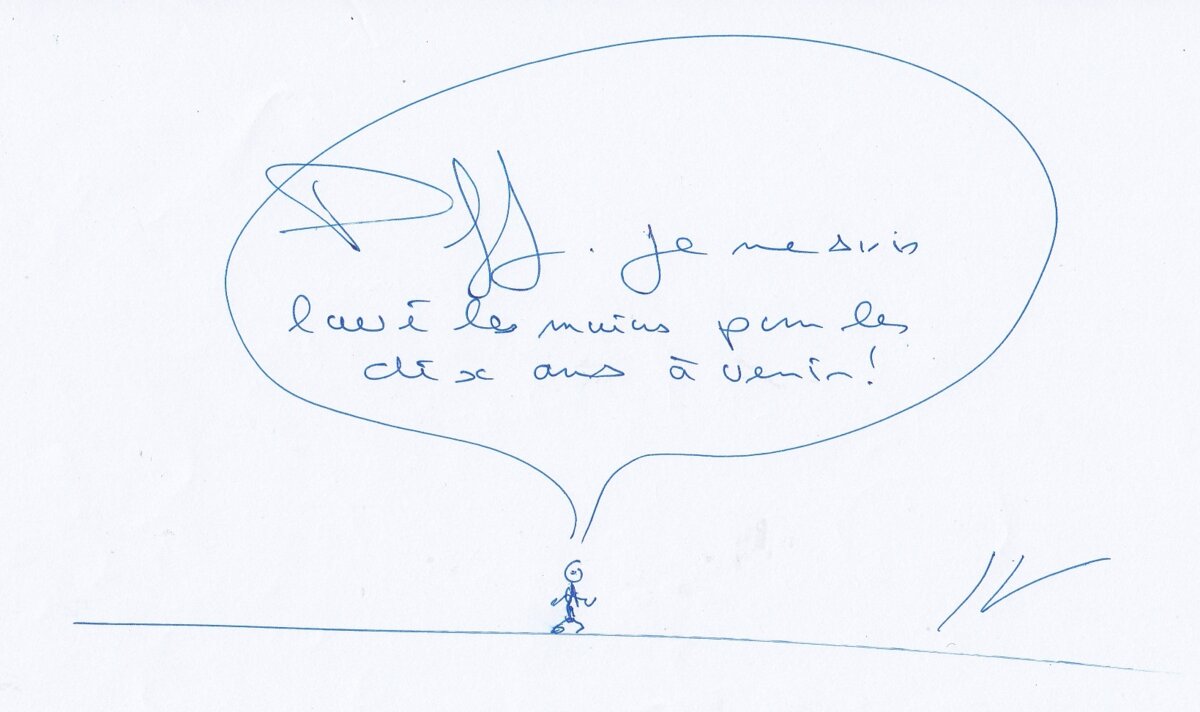 Pff. Je me suis
lavé les mains pour les
dix ans à venir!